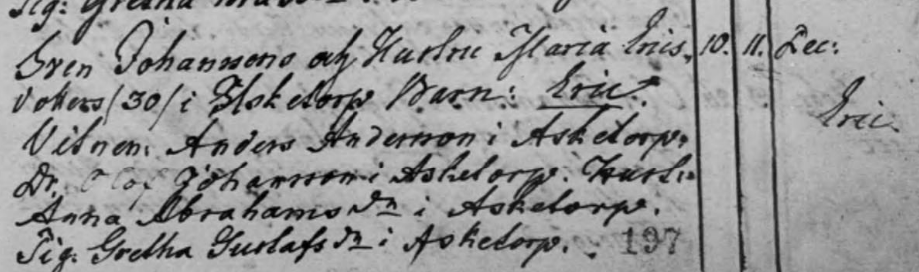 Tig: Gretha
Sven Johanssons och Hustru Maria Erics- 10. 11. Dec:
dotters /30/ i Asketorp Barn: Eric.
Eric
Vitnen: Anders Andersson i Asketorp.
Dr. Olof Johansson i Asketorp. Hust:
Anna Abrahams dn i Asketorp.
Pig: Gretha Gustafs dn i Asketorp. 197